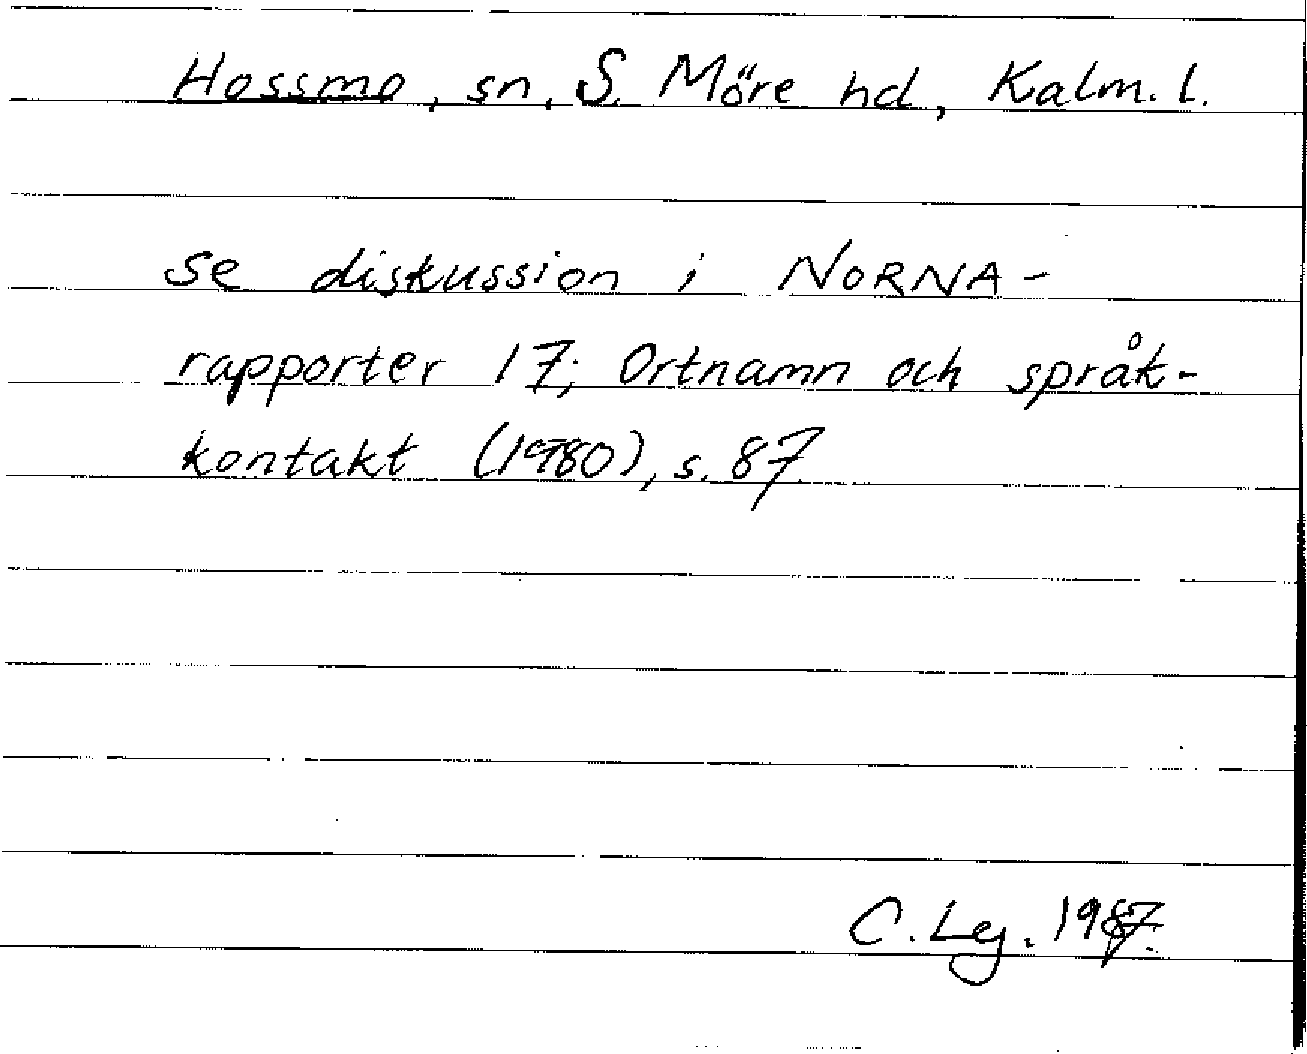 Hossmo, sn, S. Möre hd, Kalm. l.
se diskussion i NORNA-
rapporter 17; Ortnamn och språk-
kontakt (1980), s. 87
C. Lej. 1987.